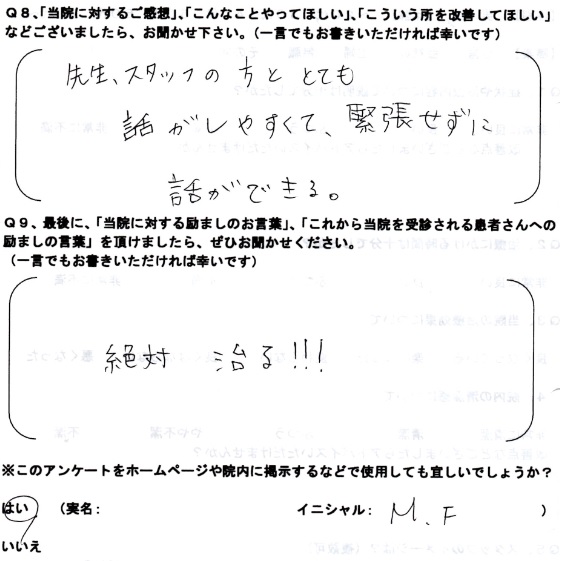 Q8、「当院に対するご感想」、「こんなことやってほしい」、「こういう所を改善してほしい」
などございましたら、お聞かせ下さい。（一言でもお書きいただければ幸いです）
先生、スタッフの方と とても
話がしやすくて、緊張せずに
話ができる。
Q9、最後に、「当院に対する励ましのお言葉」、「これから当院を受診される患者さんへの
励ましの言葉」を頂けましたら、ぜひお聞かせください。
（一言でもお書きいただければ幸いです）
絶対 治る!!!
※このアンケートをホームページや院内に掲示するなどで使用しても宜しいでしょうか？
はい （実名： イニシャル： M.F ）
いいえ